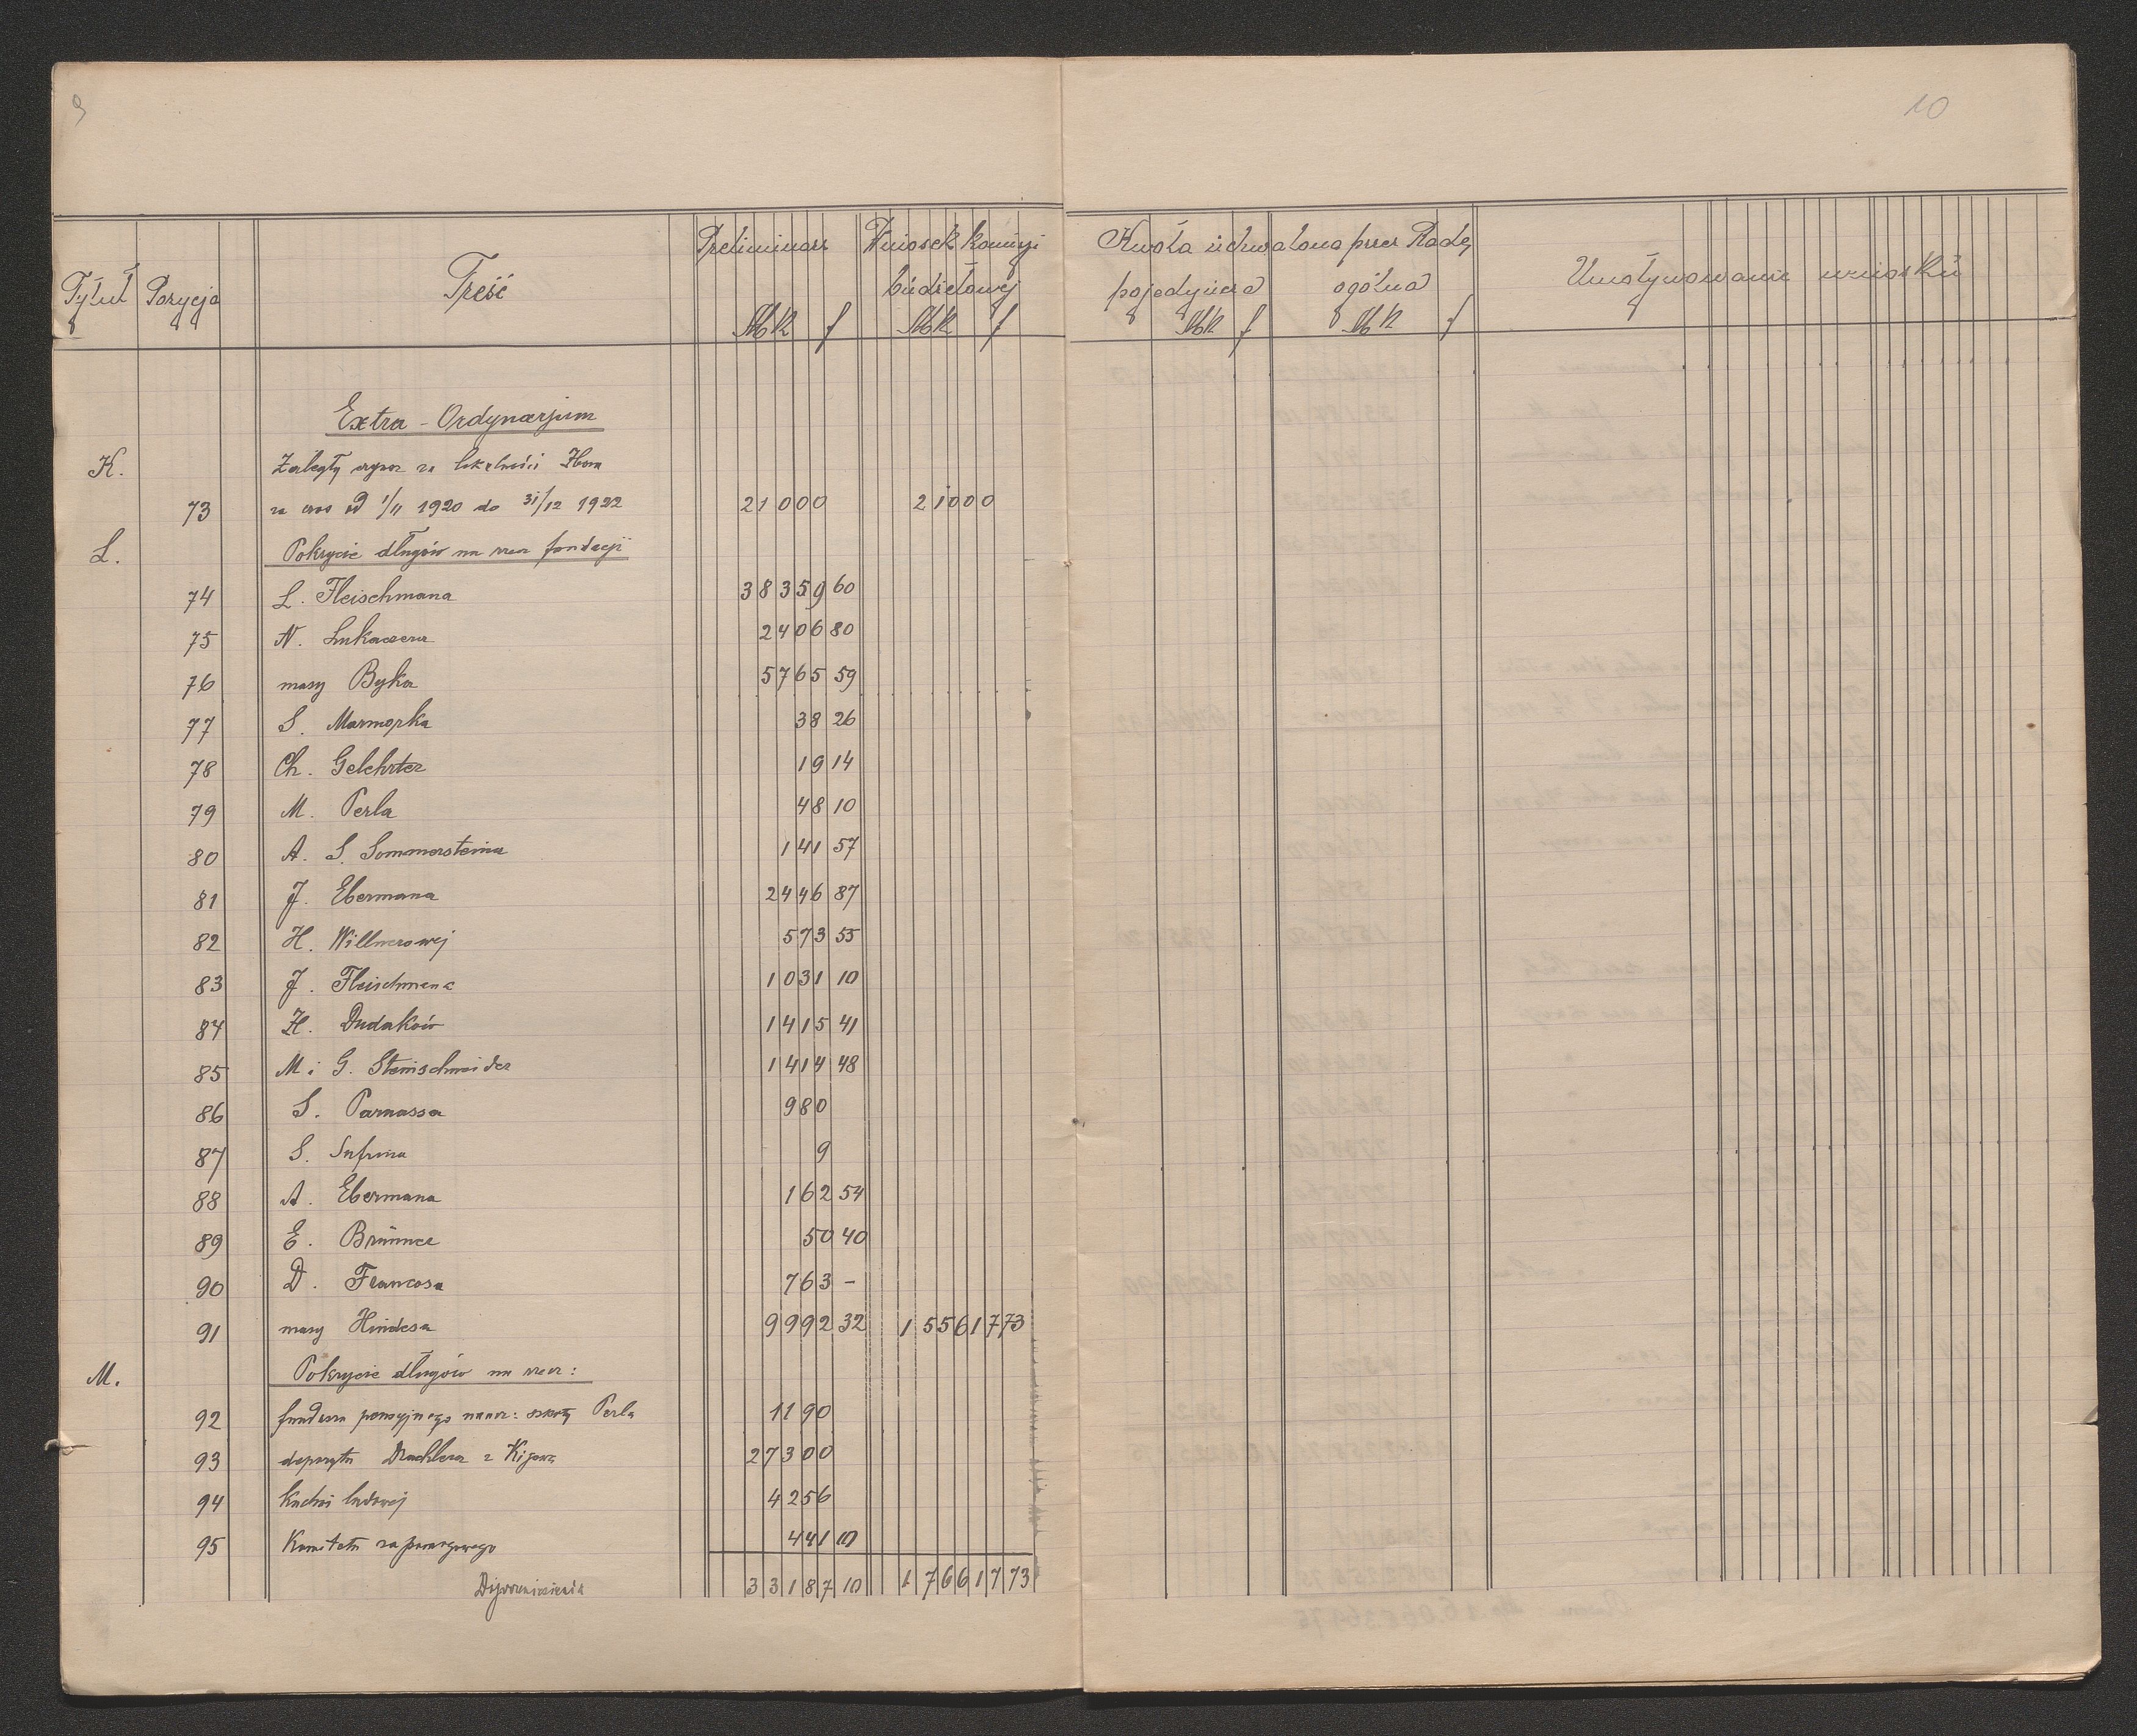 9
10
Tytuł Pozycja Treść Preliminarz Wniosek komisyi budżetowej Kwota uchwalona przez Radę Umotywowanie wniosku
pojedyńcza ogólna
Mk f Mk f Mk f Mk f
Extra-Ordynarjum
K. Zaległy czynsz za lokalności Zboru
73 za czas od 1/11 1920 do 31/12 1922 21000 21000
L. Pokrycie długów na rzecz fundacji
74 L. Fleischmana 38359 60
75 N. Lukaczera 2406 80
76 masy Byka 5765 59
77 S. Marmorka 38 26
78 Ch. Gelehrter 19 14
79 M. Perla 48 10
80 A. S. Sommersteina 141 57
81 J. Ebermana 2446 87
82 H. Willnerowej 573 55
83 J. Fleischmana 1031 10
84 H. Dudaków 1415 41
85 M i G. Steinschneider 1414 48
86 S. Parnassa 980
87 S. Safrina 9
88 A. Ebermana 162 54
89 E. Brünner 50 40
90 D. Francosa 763 -
91 masy Hindesa 9992 32 155617 73
M. Pokrycie długów na rzecz:
92 funduszu pensyjnego naucz: szkoły Perla 1190
93 depozytu Drachlera z Kijowa 27300
94 Kuchni ludowej 4256
95 Komitetu zapomogowego 441 10
Do przeniesienia 33187 10 176617 73